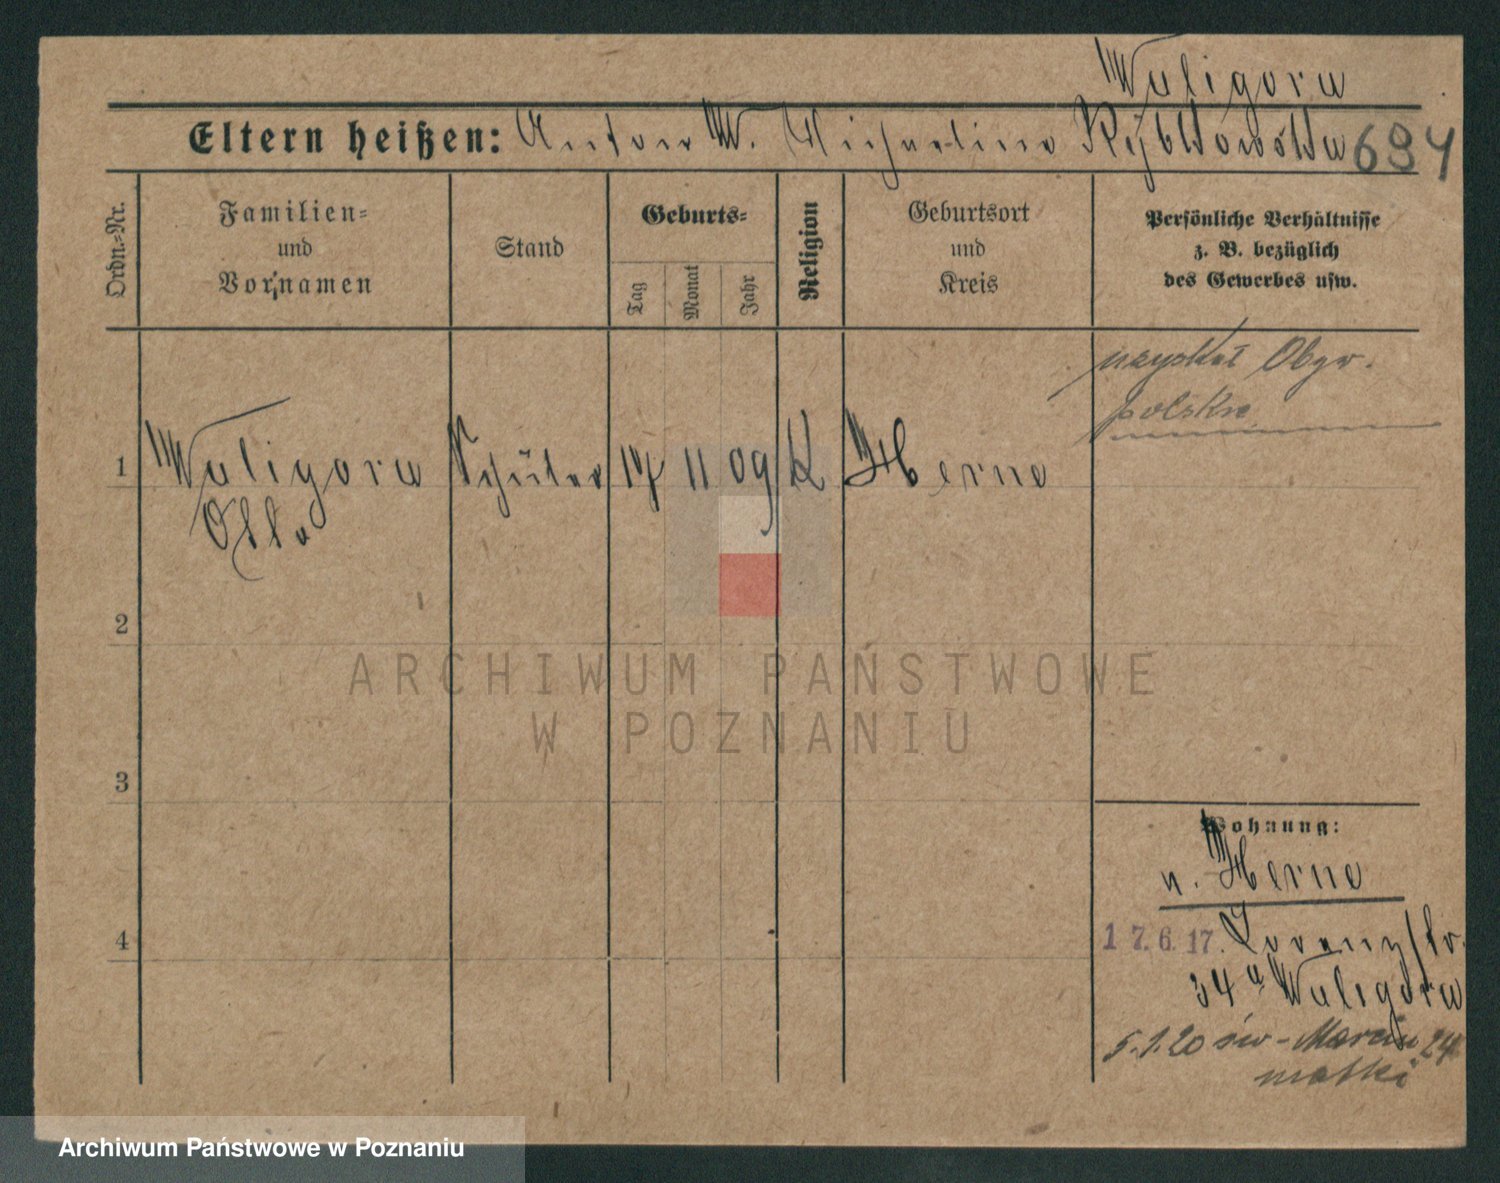 Waligora
Eltern heißen: Anton W. Michaelina Rybkowska 684
Ordn.-Nr.
Familien-
und
Vornamen
Stand
Geburts-
Tag
Monat
Jahr
Religion
Geburtsort
und
Kreis
Persönliche Verhältnisse
z. B. bezüglich
des Gewerbes usw.
uzyskał Obyw.
polskie
1 Waligora Schüler 17 11 09 K Herne
Otto
2
ARCHIWUM PAŃSTWOWE
W POZNANIU
3
Wohnung:
n. Herne
4
17.6.17. Lorenzstr.
34a Waligora
5.1.20 św-Marcin 24
matki
Archiwum Państwowe w Poznaniu